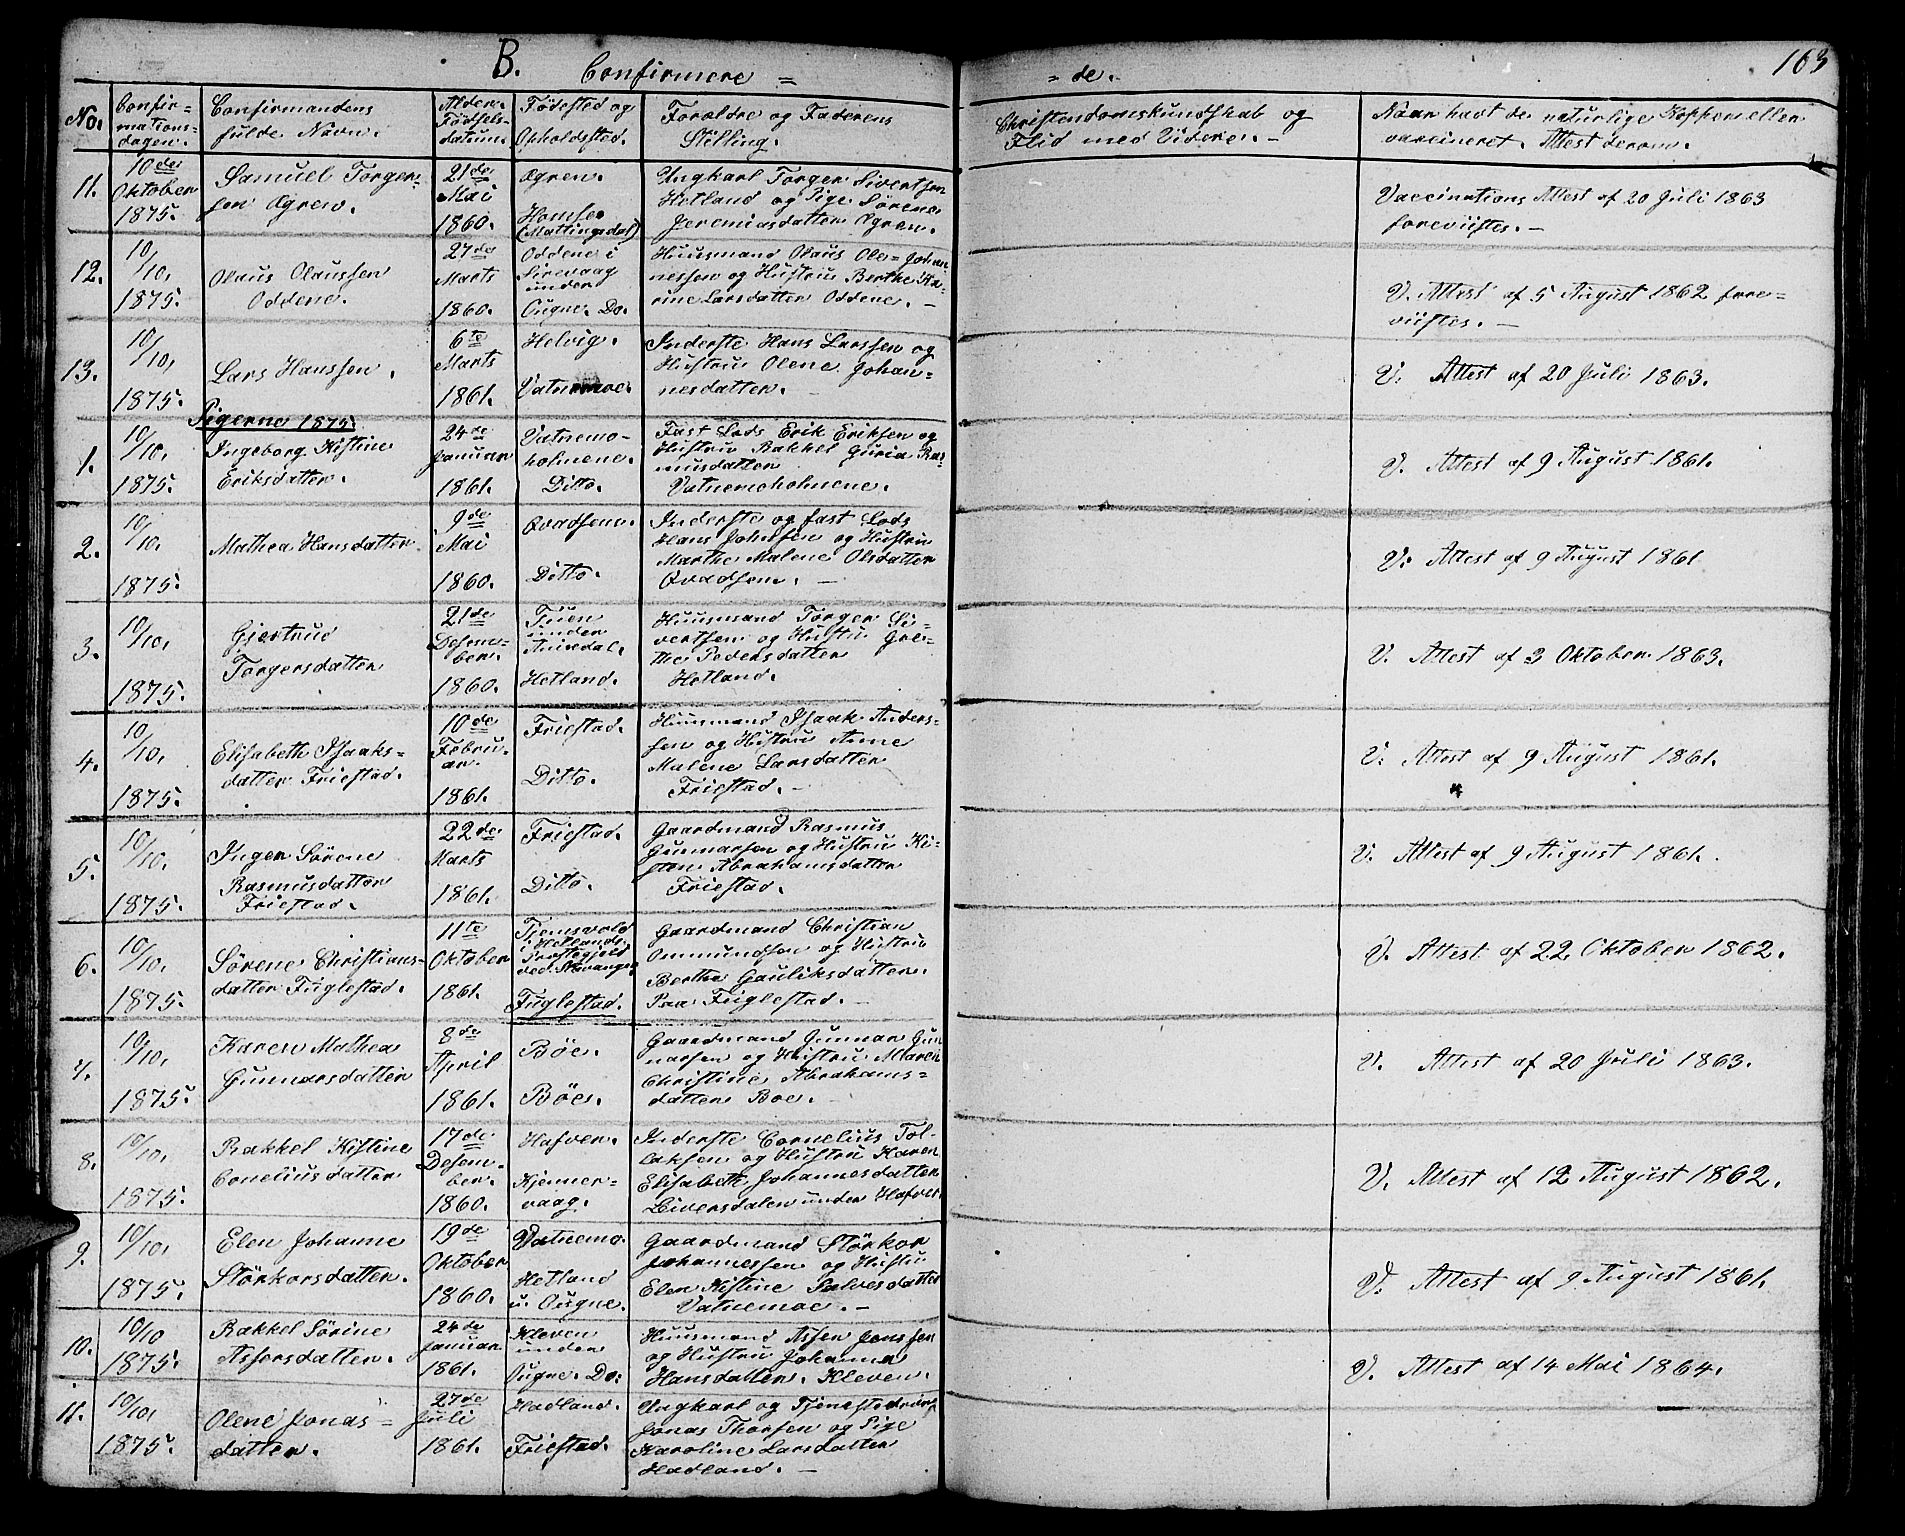 B. Confirmere = = de. 163
No. Confir=mations-dagen. Confirmandens fulde Navn. Alder. Fødsels-datum. Fødested og Opholdsted. Forældre og Faderens Stilling. Christendomskundskab og Flid med Videre. - Naar havt de naturlige Kopper eller vaccineret. Attest derom.
11. 10de Oktober 1875. Samuel Torger=sen Øgren. 21de Mai 1860. Øgren. Homse (Mattingsdal) Ungkarl Torger Sivertsen Hetland og Pige Sørene Jeremiasdatter Øgren. Vaccinations Attest af 20 Juli 1863 foreviistes. -
12. 10/10, 1875. Olaus Olaussen Oddene. 27de Marts 1860. Oddene i Sirevaag under Ougne. Do. Huusmand Olaus Ole=Johannessen og Hustru Berthe Karine Larsdatter Oddene. - V. Attest af 5 August 1862 foreviistes. -
13. 10/10, 1875. Lars Hanssen. 6te Marts 1861. Helvig. Vatnemoe. Inderste Hans Larssen og Hustru Olene Johan=nesdatter. - V. Attest af 20 Juli 1863.
Pigerne 1875.
1. 10/10, 1875. Ingeborg Kistine Eriksdatter. 24de Januar 1861. Vatnemo-holmene. Ditto. Fast Lods Erik Eriksen og Hustru Rakkel Guria Rasmusdatter Vatnemoholmene. V. Attest af 9 August 1861.
2. 10/10. 1875. Mathea Hansdatter 9de Mai 1860. Qvadsem. Ditto. Inderste og fast Lods Hans Johnsen og Hustru Marthe Malene Olsdatter Qvadsem. - V. Attest af 9 August 1861
3. 10/10, 1875. Gjertrud Torgersdatter 21de Desem-ber. 1860. Tuen under Aniksdal. Hetland. Huusmand Torger Si-vertsen og Hustru Gre-the Pedersdatter Hetland. V. Attest af 3 Oktober 1863.
4. 10/10, 1875. Elisabeth Isaaks=datter Friestad. 10de Febru-ar. 1861. Friestad. Ditto. Huusmand Isaak Anders-sen og Hustru Anne Malene Larsdatter Friestad. - V. Attest af 9 August 1861.
5. 10/10, 1875. Inger Sørene Rasmusdatter Friestad. 22de Marts 1861. Friestad. Ditto. Gaardmand Rasmus Gunnarsen og Hustru Ki-sten Abrahamsdatter Friestad. V. Attest af 9 August 1861.
6. 10/10, 1875. Sørene Christians-datter Fuglestad. 11te Oktober 1861. Tjemsvold i Hetlands Prestegjeld ved Stavanger Fuglestad. Gaardmand Christian Ommundsen og Hustru Bertha Gauliksdatter. Paa Fuglestad. - V. Attest af 22 Oktober 1862.
7. 10/10, 1875. Karen Mathea Gunnarsdatter 8de April 1861. Bøe. Bøe. Gaardmand Gunnar Gun narsen og Hustru Maren Christine Abrahams-datter Boe. - V. Attest af 20 Juli 1863.
8. 10/10. 1875. Rakkel Kistine Corneliusdatter 17de Desem-ber. 1860. Hafver. Kjenner-vaag. Inderste Cornelius Tol-laksen og Hustru Karen Elisabeth Johannesdatter under Hafver. V. Attest af 12 August 1862.
9. 10/10, 1875. Elen Johanne Störkorsdatter. 19de Oktober 1860. Vatnemo. Hetland u. Ougne. Gaardmand Störkor Johannessen og Hustru Elen Kistine Salvesdatter Vatnemoe. - V. Attest af 9 August 1861.
10. 10/10 1875. Rakkel Sørine Assersdatter. 24de Januar 1861. Kleven under Ougne. Do. Huusmand Asser Jonssen og Hustru Johanna Hansdatter. Kleven. V. Attest af 14 Mai 1864.
11. 10/10, 1875. Olene Jonas=datter. 27de Juli 1861. Hadland. Friestad. Ungkarl og Jonas Thorsen og Pige Karoline Larsdatter Hadland. -